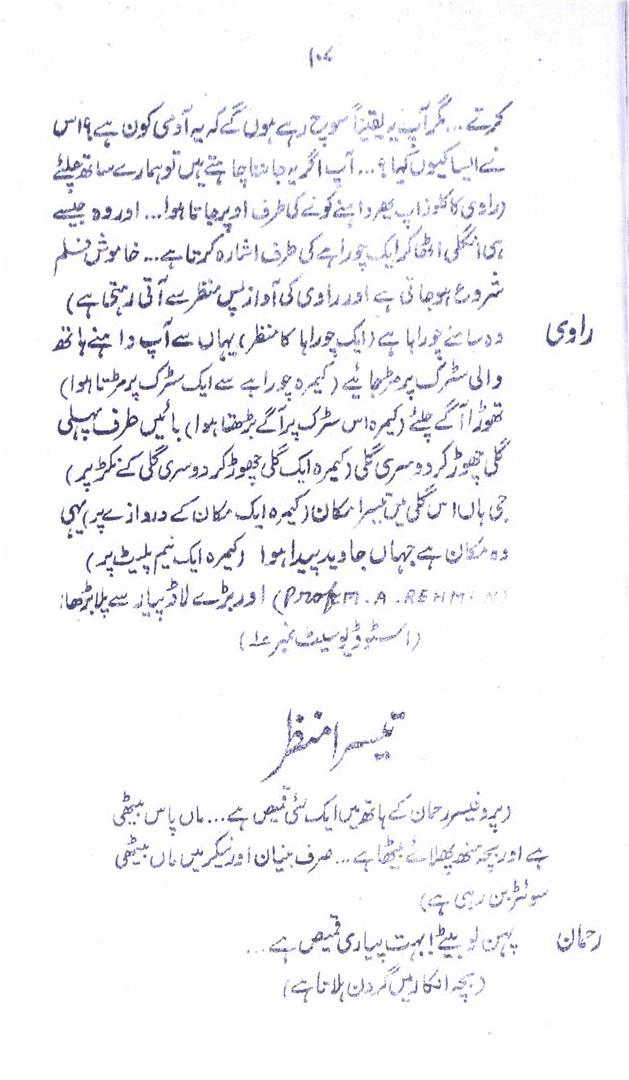 ۱۰۴
کرتے... مگر آپ یہ یقیناً سوچ رہے ہوں گے کہ یہ آدمی کون ہے؟ اس
نے ایسا کیوں کہا؟... آپ اگر یہ جاننا چاہتے ہیں تو ہمارے ساتھ چلئے
(راوی کا کلوز اپ پھر داہنے کونے کی طرف اوپر جاتا ہوا... اور وہ جیسے
ہی انگلی اٹھا کر ایک چوراہے کی طرف اشارہ کرتا ہے... خاموش فلم
شروع ہو جاتی ہے اور راوی کی آواز پس منظر سے آتی رہتی ہے)
راوی وہ سامنے چوراہا ہے (ایک چوراہا کا منظر) یہاں سے آپ داہنے ہاتھ
والی سڑک پر مڑ جائیے (کیمرہ چوراہے سے ایک سڑک پر مڑتا ہوا)
تھوڑا آگے چلئے (کیمرہ اس سڑک پر آگے بڑھتا ہوا) بائیں طرف پہلی
گلی چھوڑ کر دوسری گلی (کیمرہ ایک گلی چھوڑ کر دوسری گلی کے نکڑ پر)
جی ہاں اس گلی میں تیسرا مکان (کیمرہ ایک مکان کے دروازے پر) یہی
وہ مکان ہے جہاں جاوید پیدا ہوا (کیمرہ ایک نیم پلیٹ پر)
(Prof M. A. REHMAN) اور بڑے لاڈ پیار سے پلا بڑھا:
(اسٹوڈیو سیٹ نمبر ۱۶)
تیسرا منظر
(پروفیسر رحمان کے ہاتھ میں ایک نئی قمیص ہے... ماں پاس بیٹھی
ہے اور بچہ منھ پھلائے بیٹھا ہے... صرف بنیان اور نیکر میں ماں بیٹھی
سوئٹر بن رہی ہے)
رحمان پہن لو بیٹے! بہت پیاری قمیص ہے...
(بچہ انکار میں گردن ہلاتا ہے)